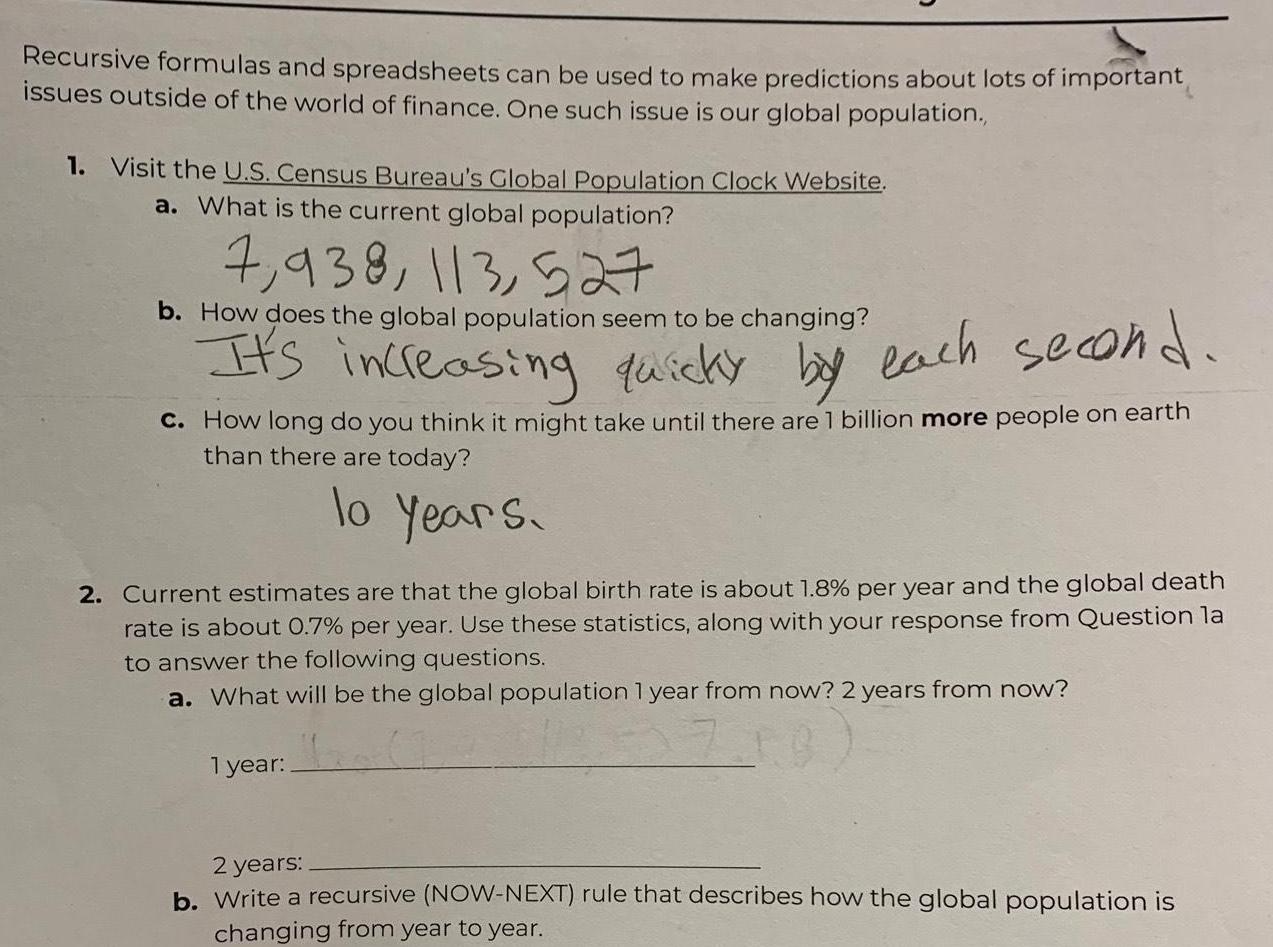 Recursive formulas and spreadsheets can be used to make predictions about lots of important
issues outside of the world of finance. One such issue is our global population.
1. Visit the U.S. Census Bureau's Global Population Clock Website.
a. What is the current global population?
7,938,113,527
b. How does the global population seem to be changing?
It's increasing quickly by each second.
c. How long do you think it might take until there are 1 billion more people on earth
than there are today?
10 years.
2. Current estimates are that the global birth rate is about 1.8% per year and the global death
rate is about 0.7% per year. Use these statistics, along with your response from Question 1a
to answer the following questions.
a. What will be the global population 1 year from now? 2 years from now?
1 year:
2 years:
b. Write a recursive (NOW-NEXT) rule that describes how the global population is
changing from year to year.